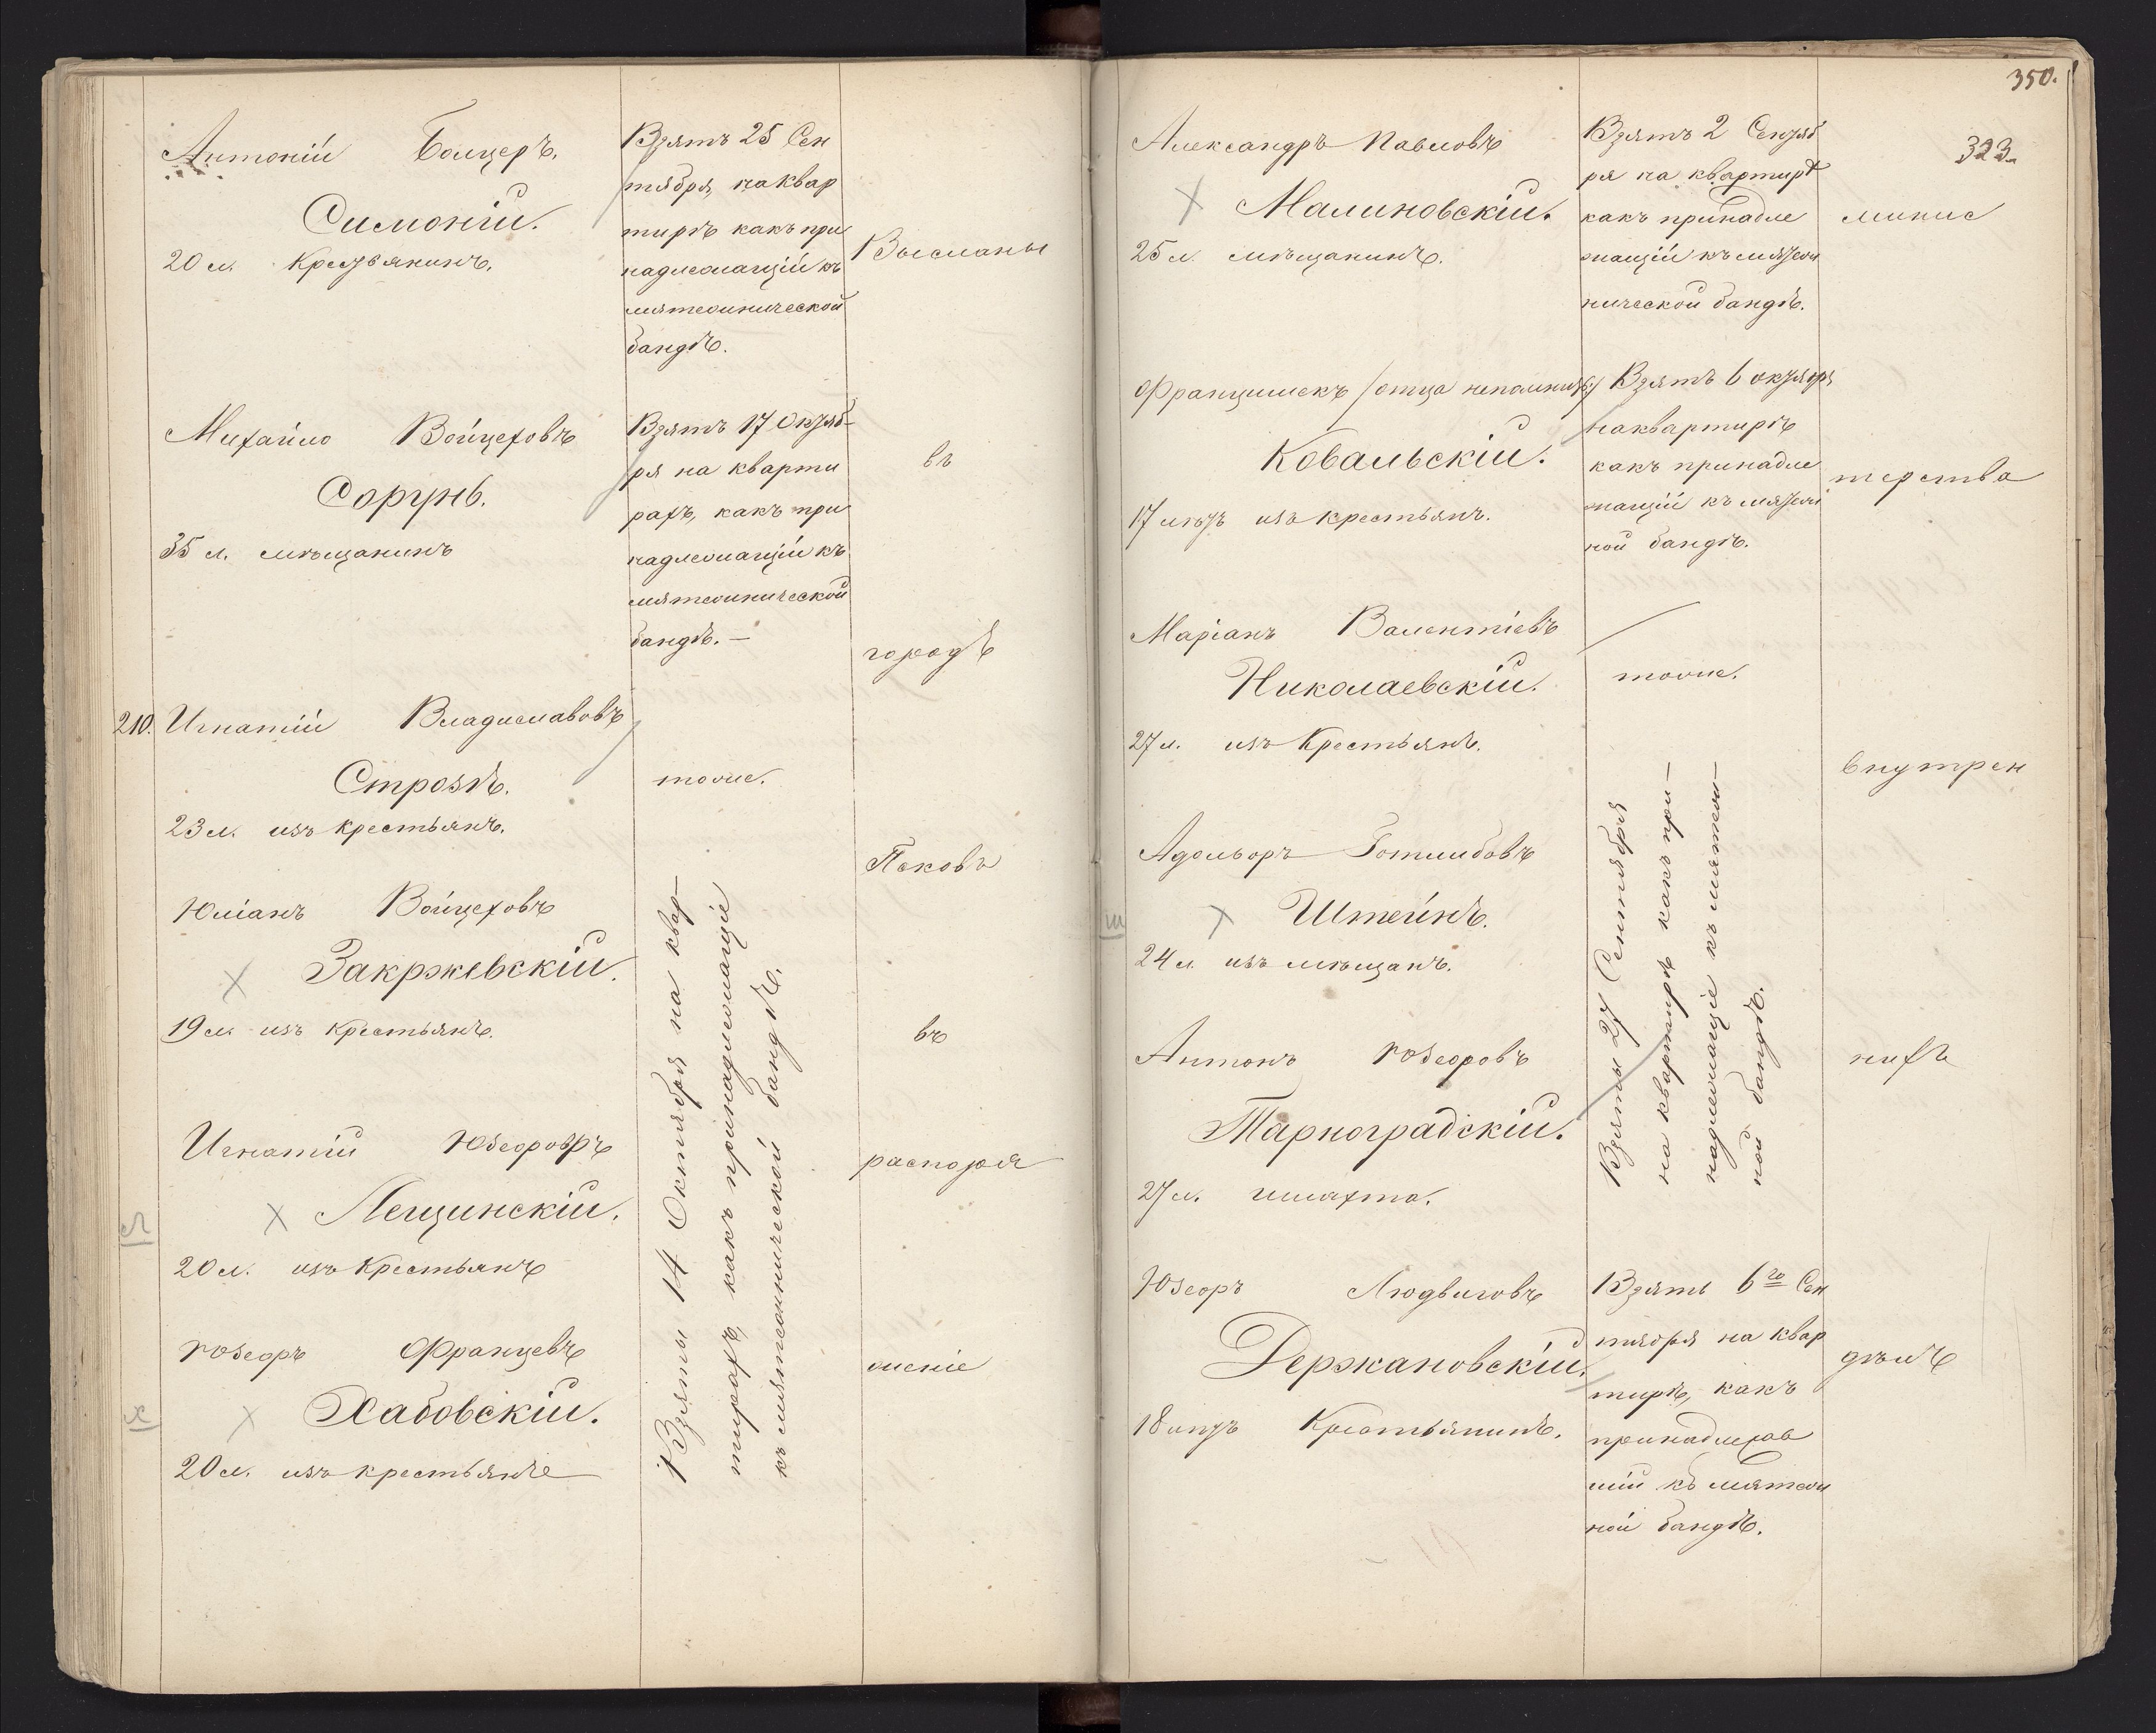 Антоній Болцеръ.
Симоній.
20 л. Крестьянинъ.
Взятъ 25 Сен
тября, на квар
тирѣ какъ при
надлежащій къ
мятежнической
бандѣ.
Михайло Войцеховъ
Сорунь.
35 л. мѣщанинъ
Взятъ 17 Октяб-
ря на кварти
рахъ, какъ при
надлежащій къ
мятежнической
бандѣ. —
210. Игнатій Владиславовъ
Строзъ.
23 л. изъ крестьянъ.
тоже.
Юліанъ Войцеховъ
Закржевскій.
19 л. изъ крестьянъ.
Л
Игнатій Юзефовъ
Лещинскій.
20 л. изъ Крестьянъ
Х
Юзефъ Францевъ
Хабовскій.
20 л. изъ крестьянъ
Взяты 14 Октября на квар-
тирахъ, какъ принадлежащіе
къ мятежнической бандѣ.
Высланы
въ
городъ
Псковъ
въ
распоря
женіе
350.
323.
Александръ Павловъ
Малиновскій.
25 л. мѣщанинъ.
Взятъ 2 Сентяб
ря на квартирѣ
какъ принадле
жащій къ мятеж
нической бандѣ.
Францишекъ /отца непомнитъ/
Ковальскій.
17 лѣтъ изъ крестьянъ.
Взятъ 6 октября
на квартирѣ
какъ принадле
жащій къ мятеж
ной бандѣ.
Маріанъ Валентіевъ
Николаевскій.
27 л. изъ Крестьянъ.
тоже.
Ш
Адольфъ Готлибовъ
Штейнъ.
24 л. изъ мѣщанъ.
Антонъ Юзефовъ
Тарноградскій.
27 л. шляхта.
Взяты 27 Сентября
на квартирѣ какъ при-
надлежащіе къ мятеж-
ной бандѣ.
Юзефъ Людвиговъ
Держановскій.
18 лѣтъ Крестьянинъ.
Взятъ 6го Сен
тября на квар
тирѣ, какъ
принадлежав
шій къ мятеж
ной бандѣ.
минис
терства
внутрен
нихъ
дѣлъ